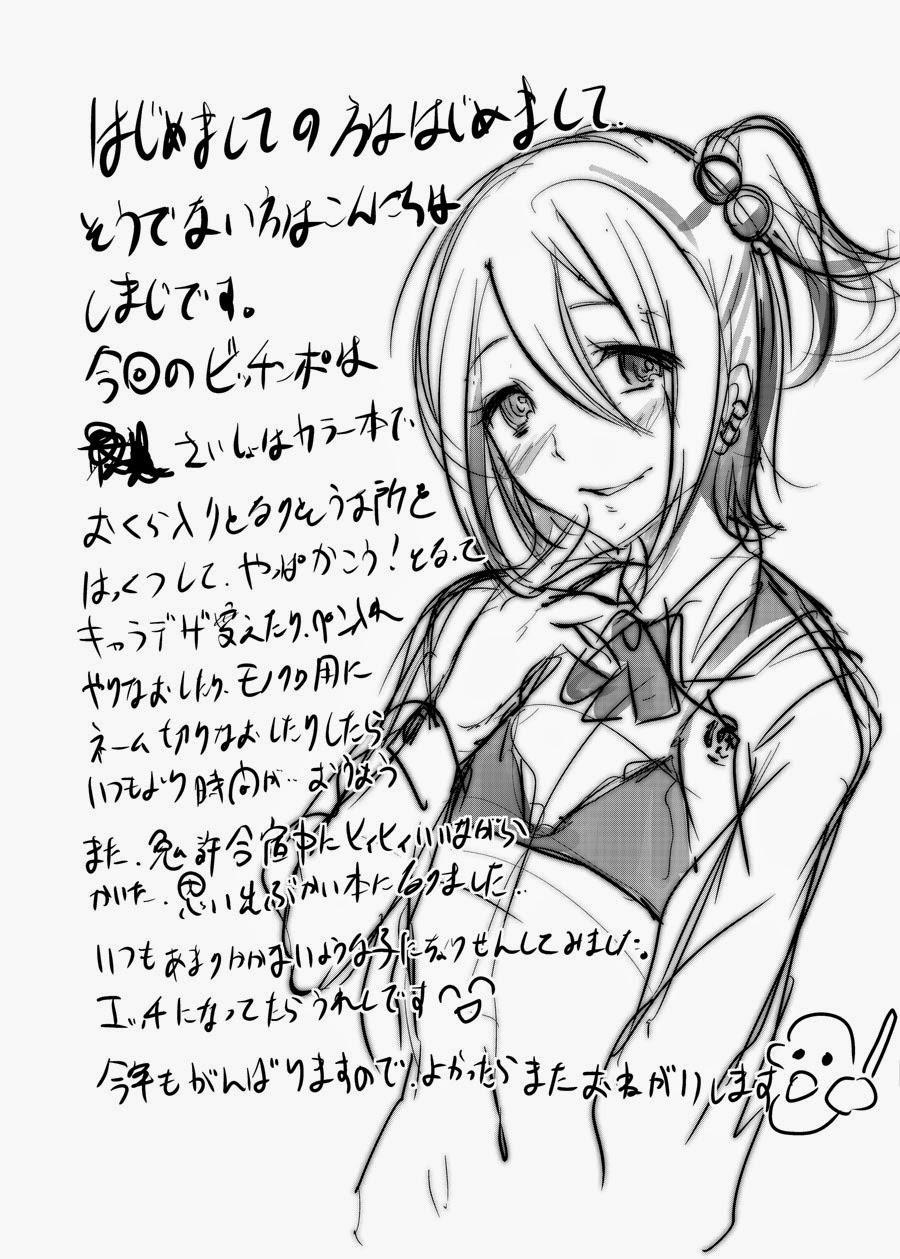 はじめましての方ははじめまして..
そうでない方はこんにちは
しまじです。
今回のビッチンポは
さいしょはカラー本で、
おくら入りとなりそうな所を
はっくつして、やっぱかこう!となって
キャラデザ変えたり、ペン入れ
やりなおしたり、モノクロ用に
ネーム切りなおしたりしたら
いつもより時間が..おりもう
また、免許合宿中にヒィヒィいいながら
かいた、思い出ぶかい本になりました..
いつもあまりかかないような子にちょうせんしてみました。
エッチになってたらうれしです
今年もがんばりますので、よかったらまたおねがいします